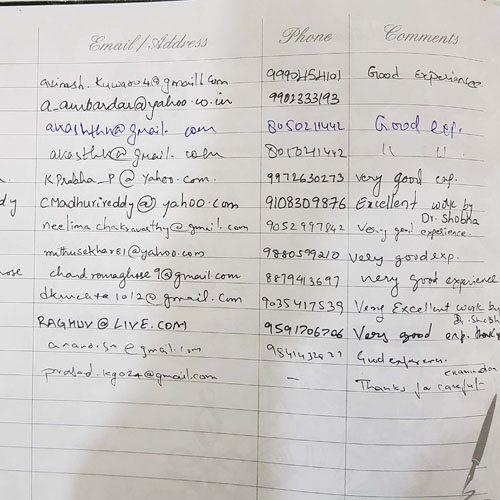 Email / Address Phone Comments
99904154101 Good Experience
a.ambardar@yahoo.co.in 9902333193
akasthkn@gmail.com 8050211442 Good exp.
akasthk@gmail.com 8050211442 " "
KPrabha_P@yahoo.com. 9972630273 very good exp.
dy CMadhurireddy@yahoo.com 9108309876 Excellent work by Dr. Shobha
neelima.chakravarthy@gmail.com 9052997942 Very good experience
mithusekhar81@yahoo.com 9880599210 very good exp.
hose chandromaghose9@gmail.com 8879413697 very good experience
@gmail.com 9035417539 Very Excellent work by Dr. Shobh
RAGHUV@LIVE.COM 9591706706 Very good exp.
@gmail.com Good experience.
prasad.kg024@gmail.com — Thanks for careful examination